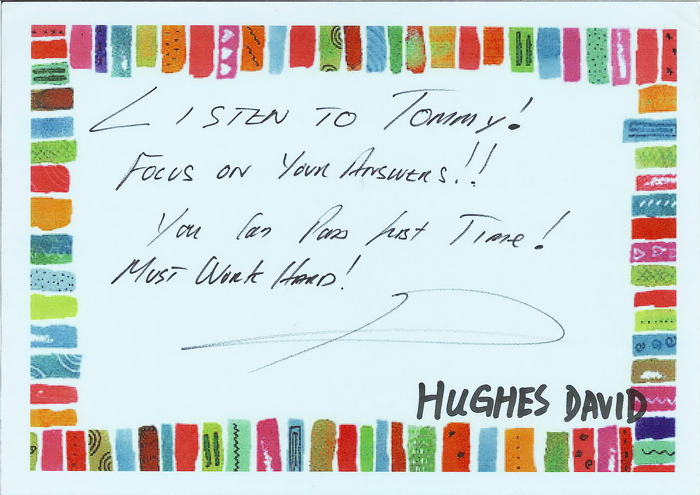 LISTEN TO TOMMY!
FOCUS ON YOUR ANSWERS!!
You Can Pass first Time!
MUST WORK HARD!
HUGHES DAVID